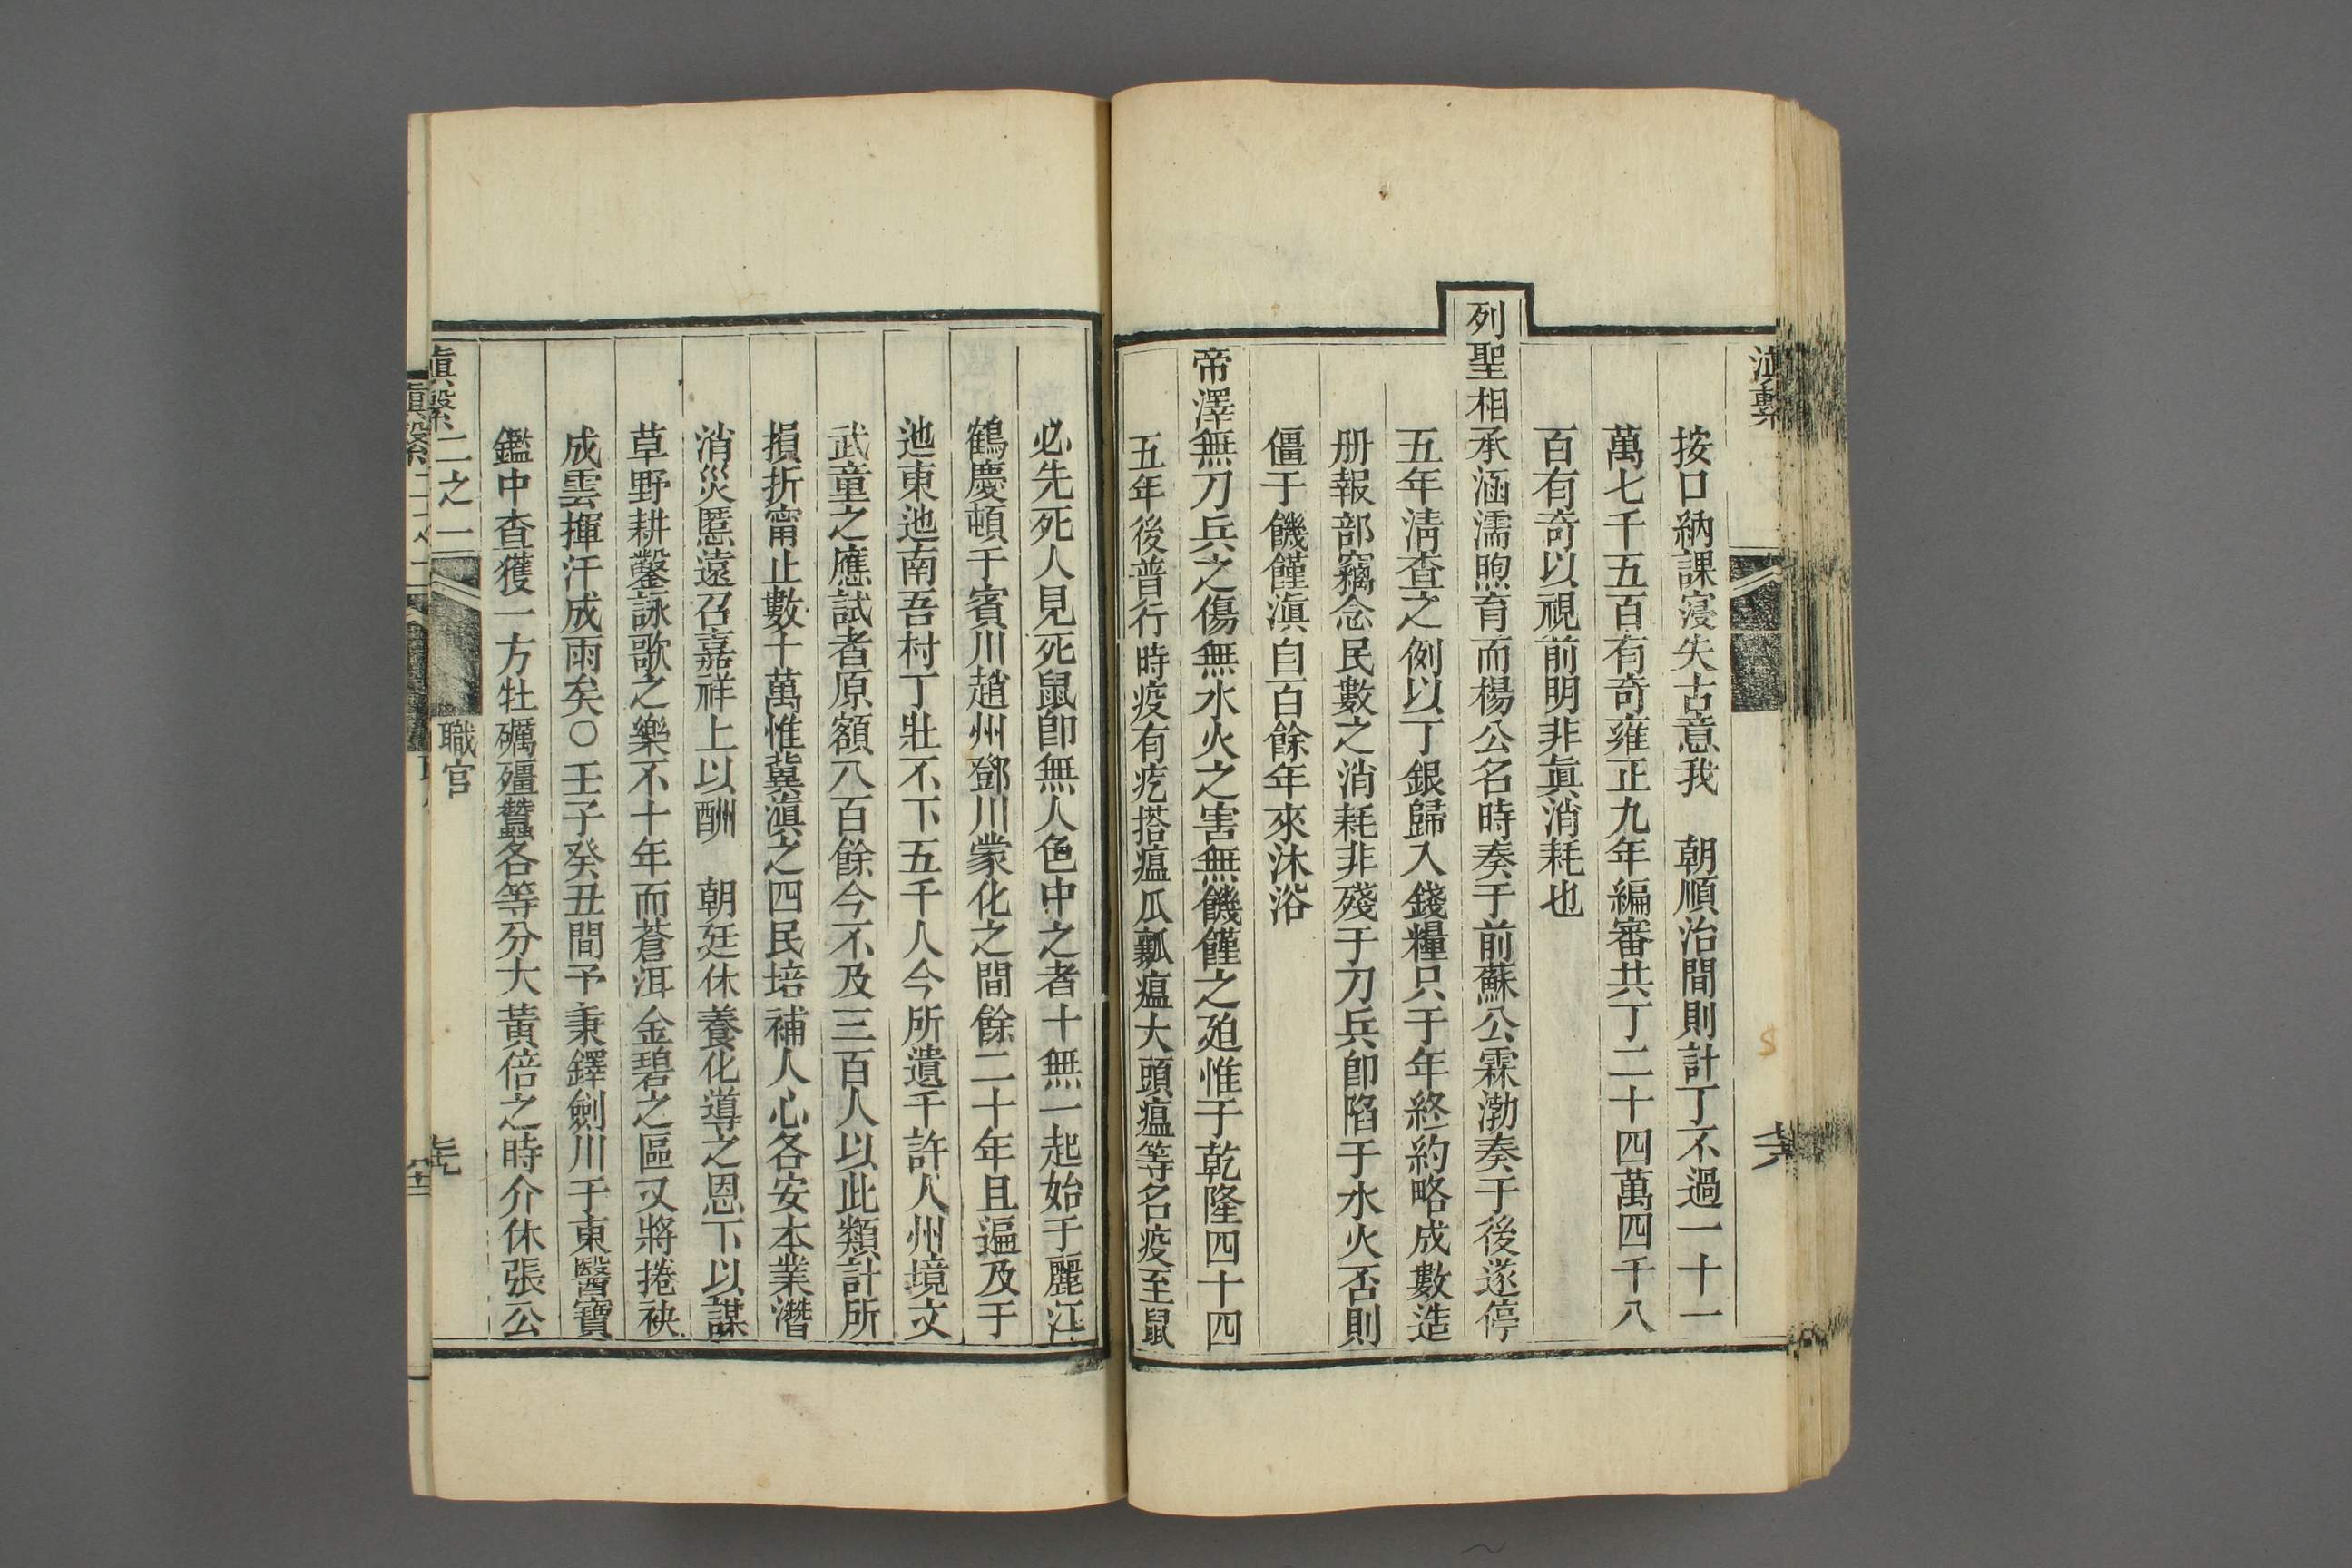 滇繫
按口納課寖失古意我 朝順治間則計丁不過一十一
萬七千五百有奇雍正九年編審共丁二十四萬四千八
百有奇以視前明非眞消耗也
列聖相承涵濡煦育而楊公名時奏于前蘇公霖渤奏于後遂停
五年淸查之例以丁銀歸入錢糧只于年終約略成數造
册報部竊念民數之消耗非殘于刀兵卽陷于水火否則
僵于饑饉滇自百餘年來沐浴
帝澤無刀兵之傷無水火之害無饑饉之廹惟于乾隆四十四
五年後普行時疫有疙搭瘟瓜瓤瘟大頭瘟等名疫至鼠
必先死人見死鼠卽無人色中之者十無一起始于麗江
鶴慶頓于賓川趙州鄧川蒙化之間餘二十年且遍及于
迆東迆南吾村丁壯不下五千人今所遺千許人州境文
武童之應試者原額八百餘今不及三百人以此類計所
損折甯止數千萬惟冀滇之四民培補人心各安本業潛
消災慝遠召嘉祥上以酬 朝廷休養化導之恩下以謀
草野耕鑿詠歌之樂不十年而蒼洱金碧之區又將捲袂
成雲揮汗成雨矣○壬子癸丑間予秉鐸劍川于東醫寶
鑑中查獲一方牡礪殭蠶各等分大黃倍之時介休張公
滇繫 二之一 職官